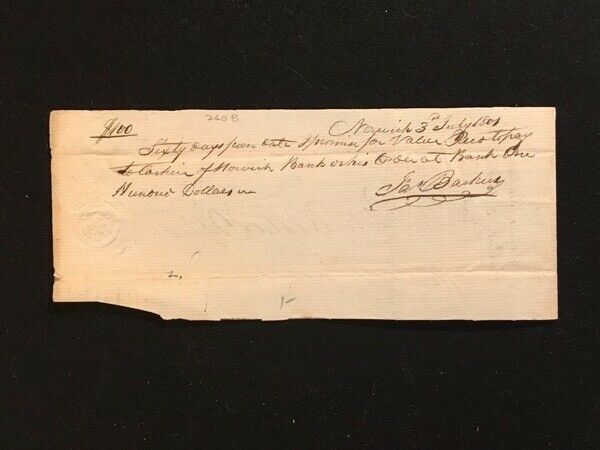 2508
$100
Norwich 3rd July 1801
Sixty days from date I promise for Value Recd to pay
to Cashier of Norwich Bank or his Order at Bank One
Hundred Dollars
Jas Backus
2.
1-